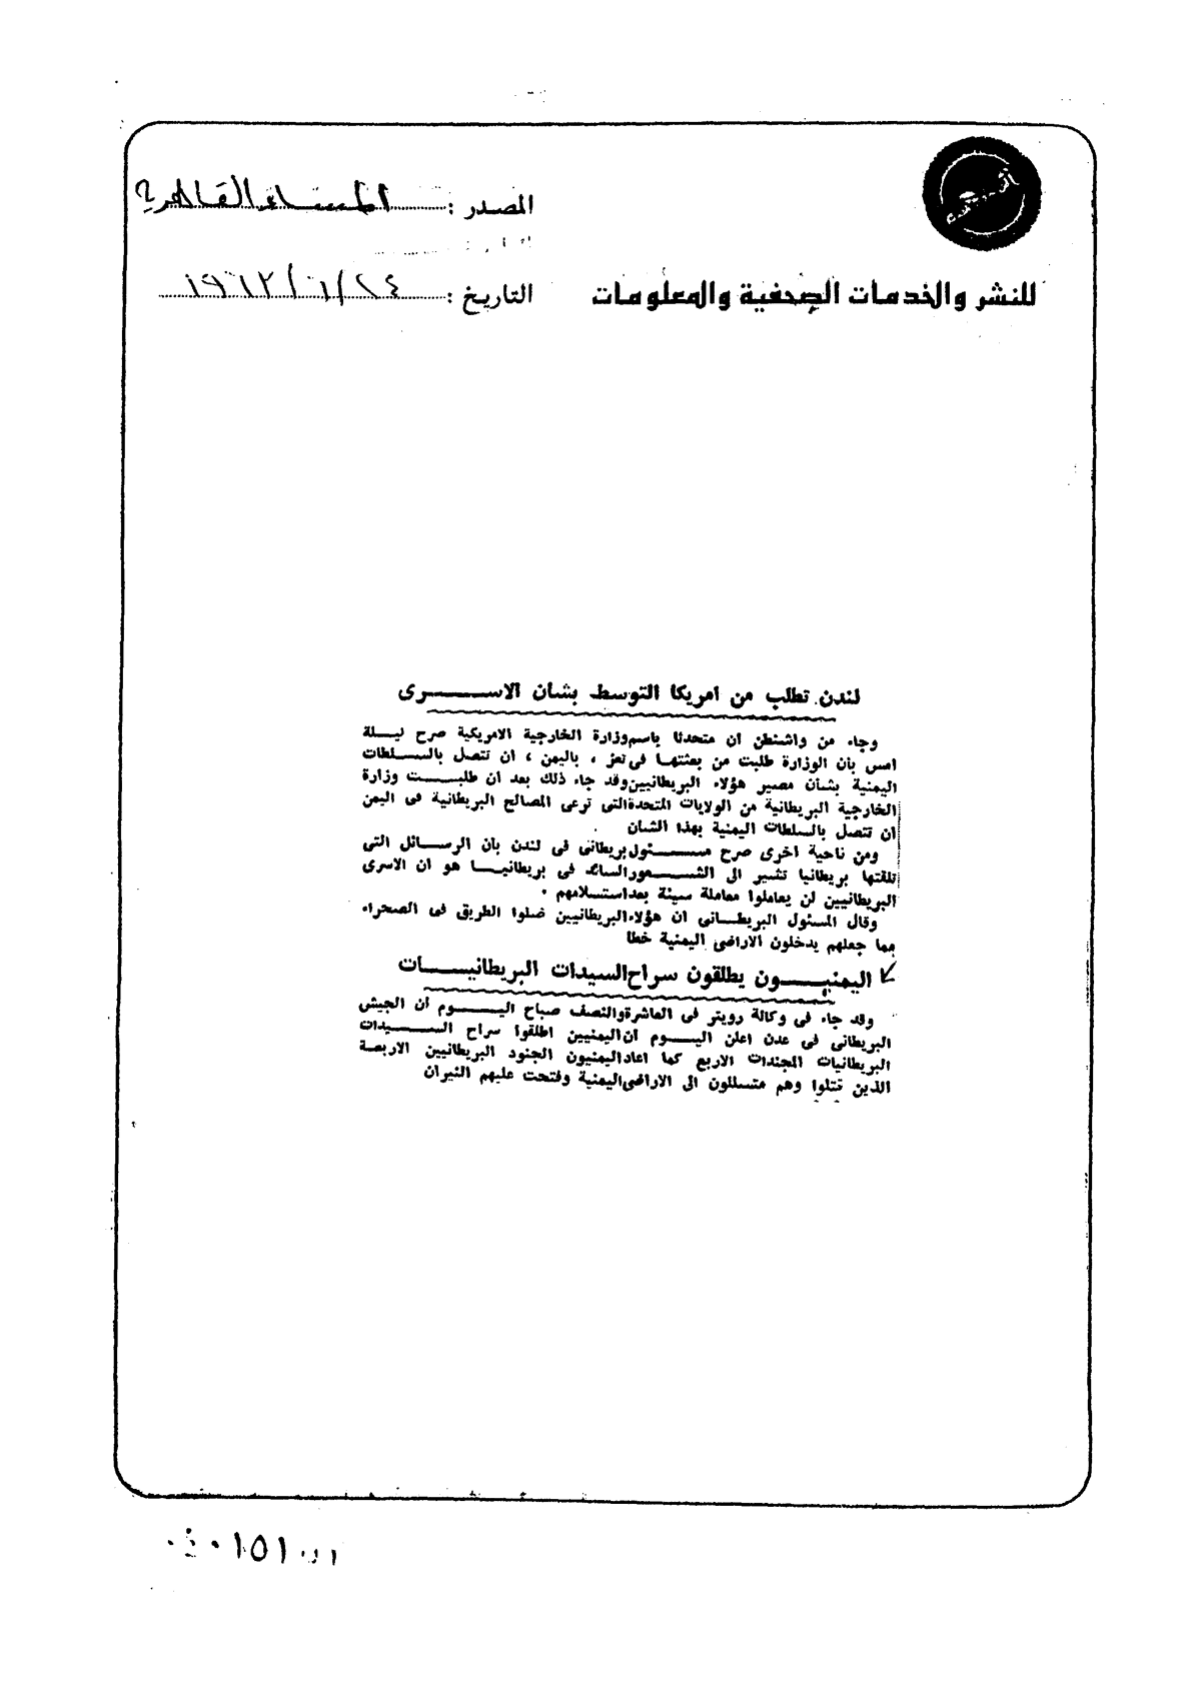 المصدر : المساء القاهرية
التاريخ : ١٩٦٣/٦/٢٤
للنشر والخدمات الصحفية والمعلومات
لندن تطلب من امريكا التوسط بشان الاســـرى
وجاء من واشنطن ان متحدثا باسم وزارة الخارجية الامريكية صرح ليــلة
امس بأن الوزارة طلبت من بعثتهـا فى تعز ، باليمن ، ان تتصل بالســلطات
اليمنية بشأن مصير هؤلاء البريطانيين وقد جاء ذلك بعد ان طلبـــت وزارة
الخارجية البريطانية من الولايات المتحدة التى ترعى المصالح البريطانية فى اليمن
ان تتصل بالسلطات اليمنية بهذا الشان
ومن ناحية اخرى صرح مســـئول بريطانى فى لندن بان الرســائل التى
تلقتها بريطانيا تشير الى الشـــعور السائد فى بريطانيــا هو ان الاسرى
البريطانيين لن يعاملوا معاملة سيئة بعد استسلامهم .
وقال المسئول البريطــانى ان هؤلاء البريطانيين ضلوا الطريق فى الصحراء
مما جعلهم يدخلون الاراضى اليمنية خطا
اليمنيـــون يطلقون سراح السيدات البريطانيـــات
وقد جاء فى وكالة رويتر فى العاشرة والنصف صباح اليـــوم أن الجيش
البريطانى فى عدن اعلن اليـــوم ان اليمنيين اطلقوا سراح الســـيدات
البريطانيات المجندات الاربع كما اعاد اليمنيون الجنود البريطانيين الاربعة
الذين قتلوا وهم متسللون الى الاراضى اليمنية وفتحت عليهم النيران